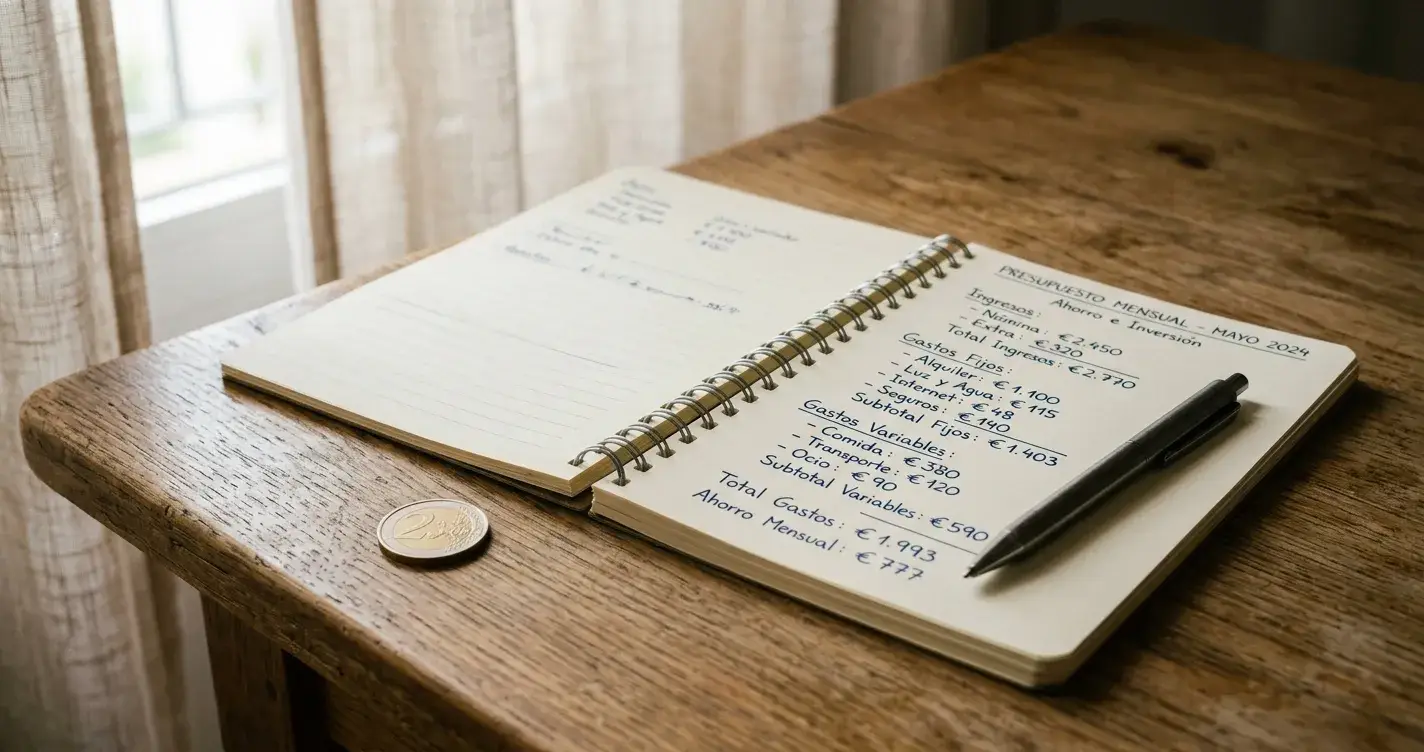 2
PRESUPUESTO MENSUAL - MAYO 2024
Ahorro e Inversión
Ingresos:
- Nómina: €2.450
- Extra: €320
Total Ingresos: €2.770
Gastos Fijos:
- Alquiler: €1.100
- Luz y Agua: €115
- Internet: €48
- Seguros: €140
Subtotal Fijos: €1.403
Gastos Variables:
- Comida: €380
- Transporte: €120
- Ocio: €90
Subtotal Variables: €590
Total Gastos: €1.993
Ahorro Mensual: €777